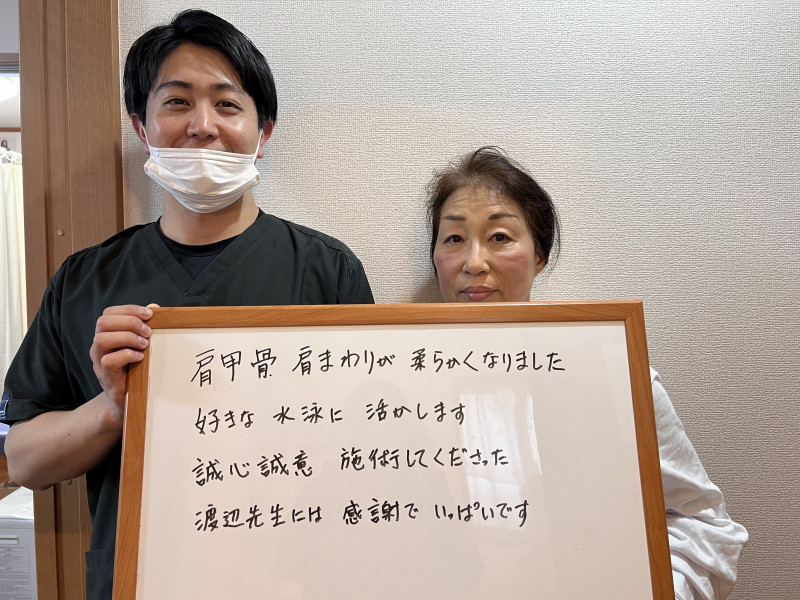 肩甲骨 肩まわりが 柔らかくなりました
好きな 水泳に 活かします
誠心誠意 施術してくださった
渡辺先生には 感謝で いっぱいです